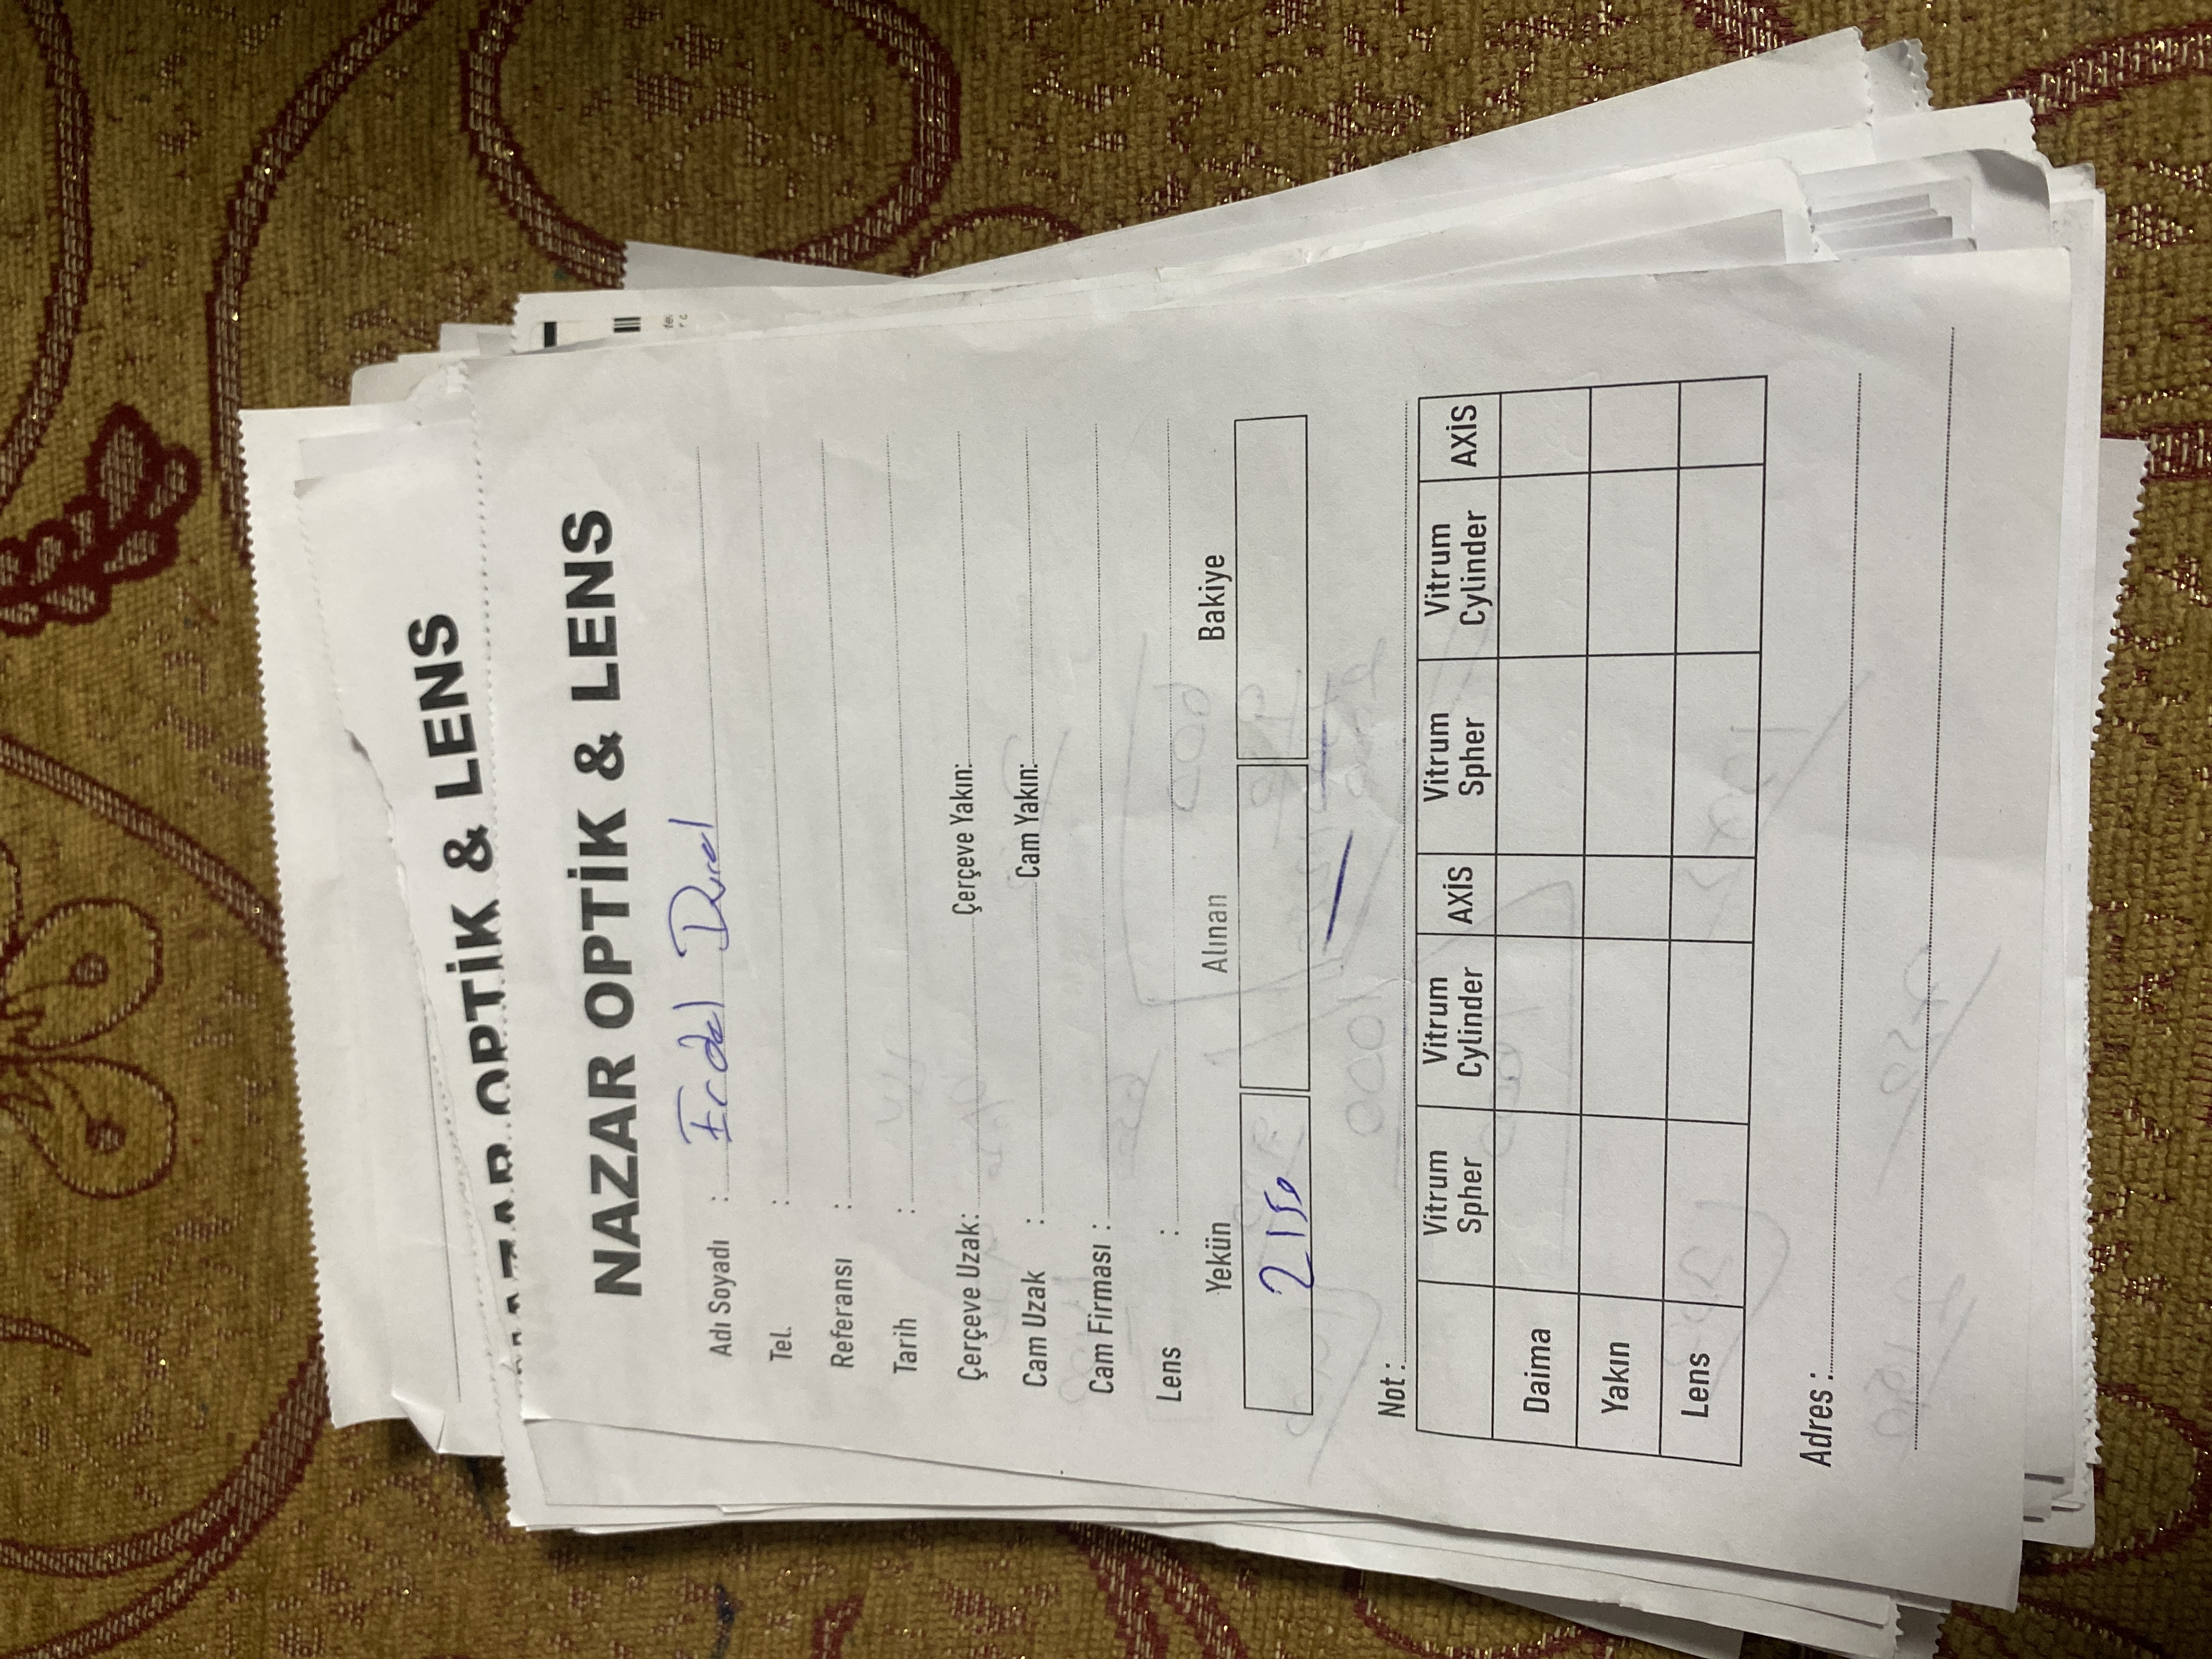 NAZAR OPTİK & LENS
NAZAR OPTİK & LENS
Adı Soyadı : Erdal
Tel. :
Referansı :
Tarih :
Çerçeve Uzak: Çerçeve Yakın:
Cam Uzak : Cam Yakın:
Cam Firması :
Lens :
Yekün Alınan Bakiye
2150
Not :
Vitrum Spher Vitrum Cylinder AXİS Vitrum Spher Vitrum Cylinder AXİS
Daima
Yakın
Lens
Adres :